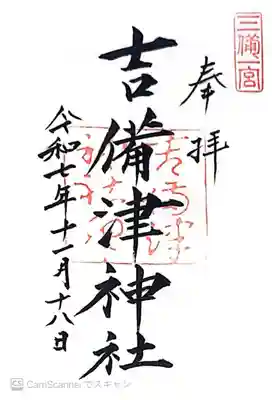 三備一宮
奉拝
吉備津神社
令和七年十一月十八日
CS CamScanner でスキャン